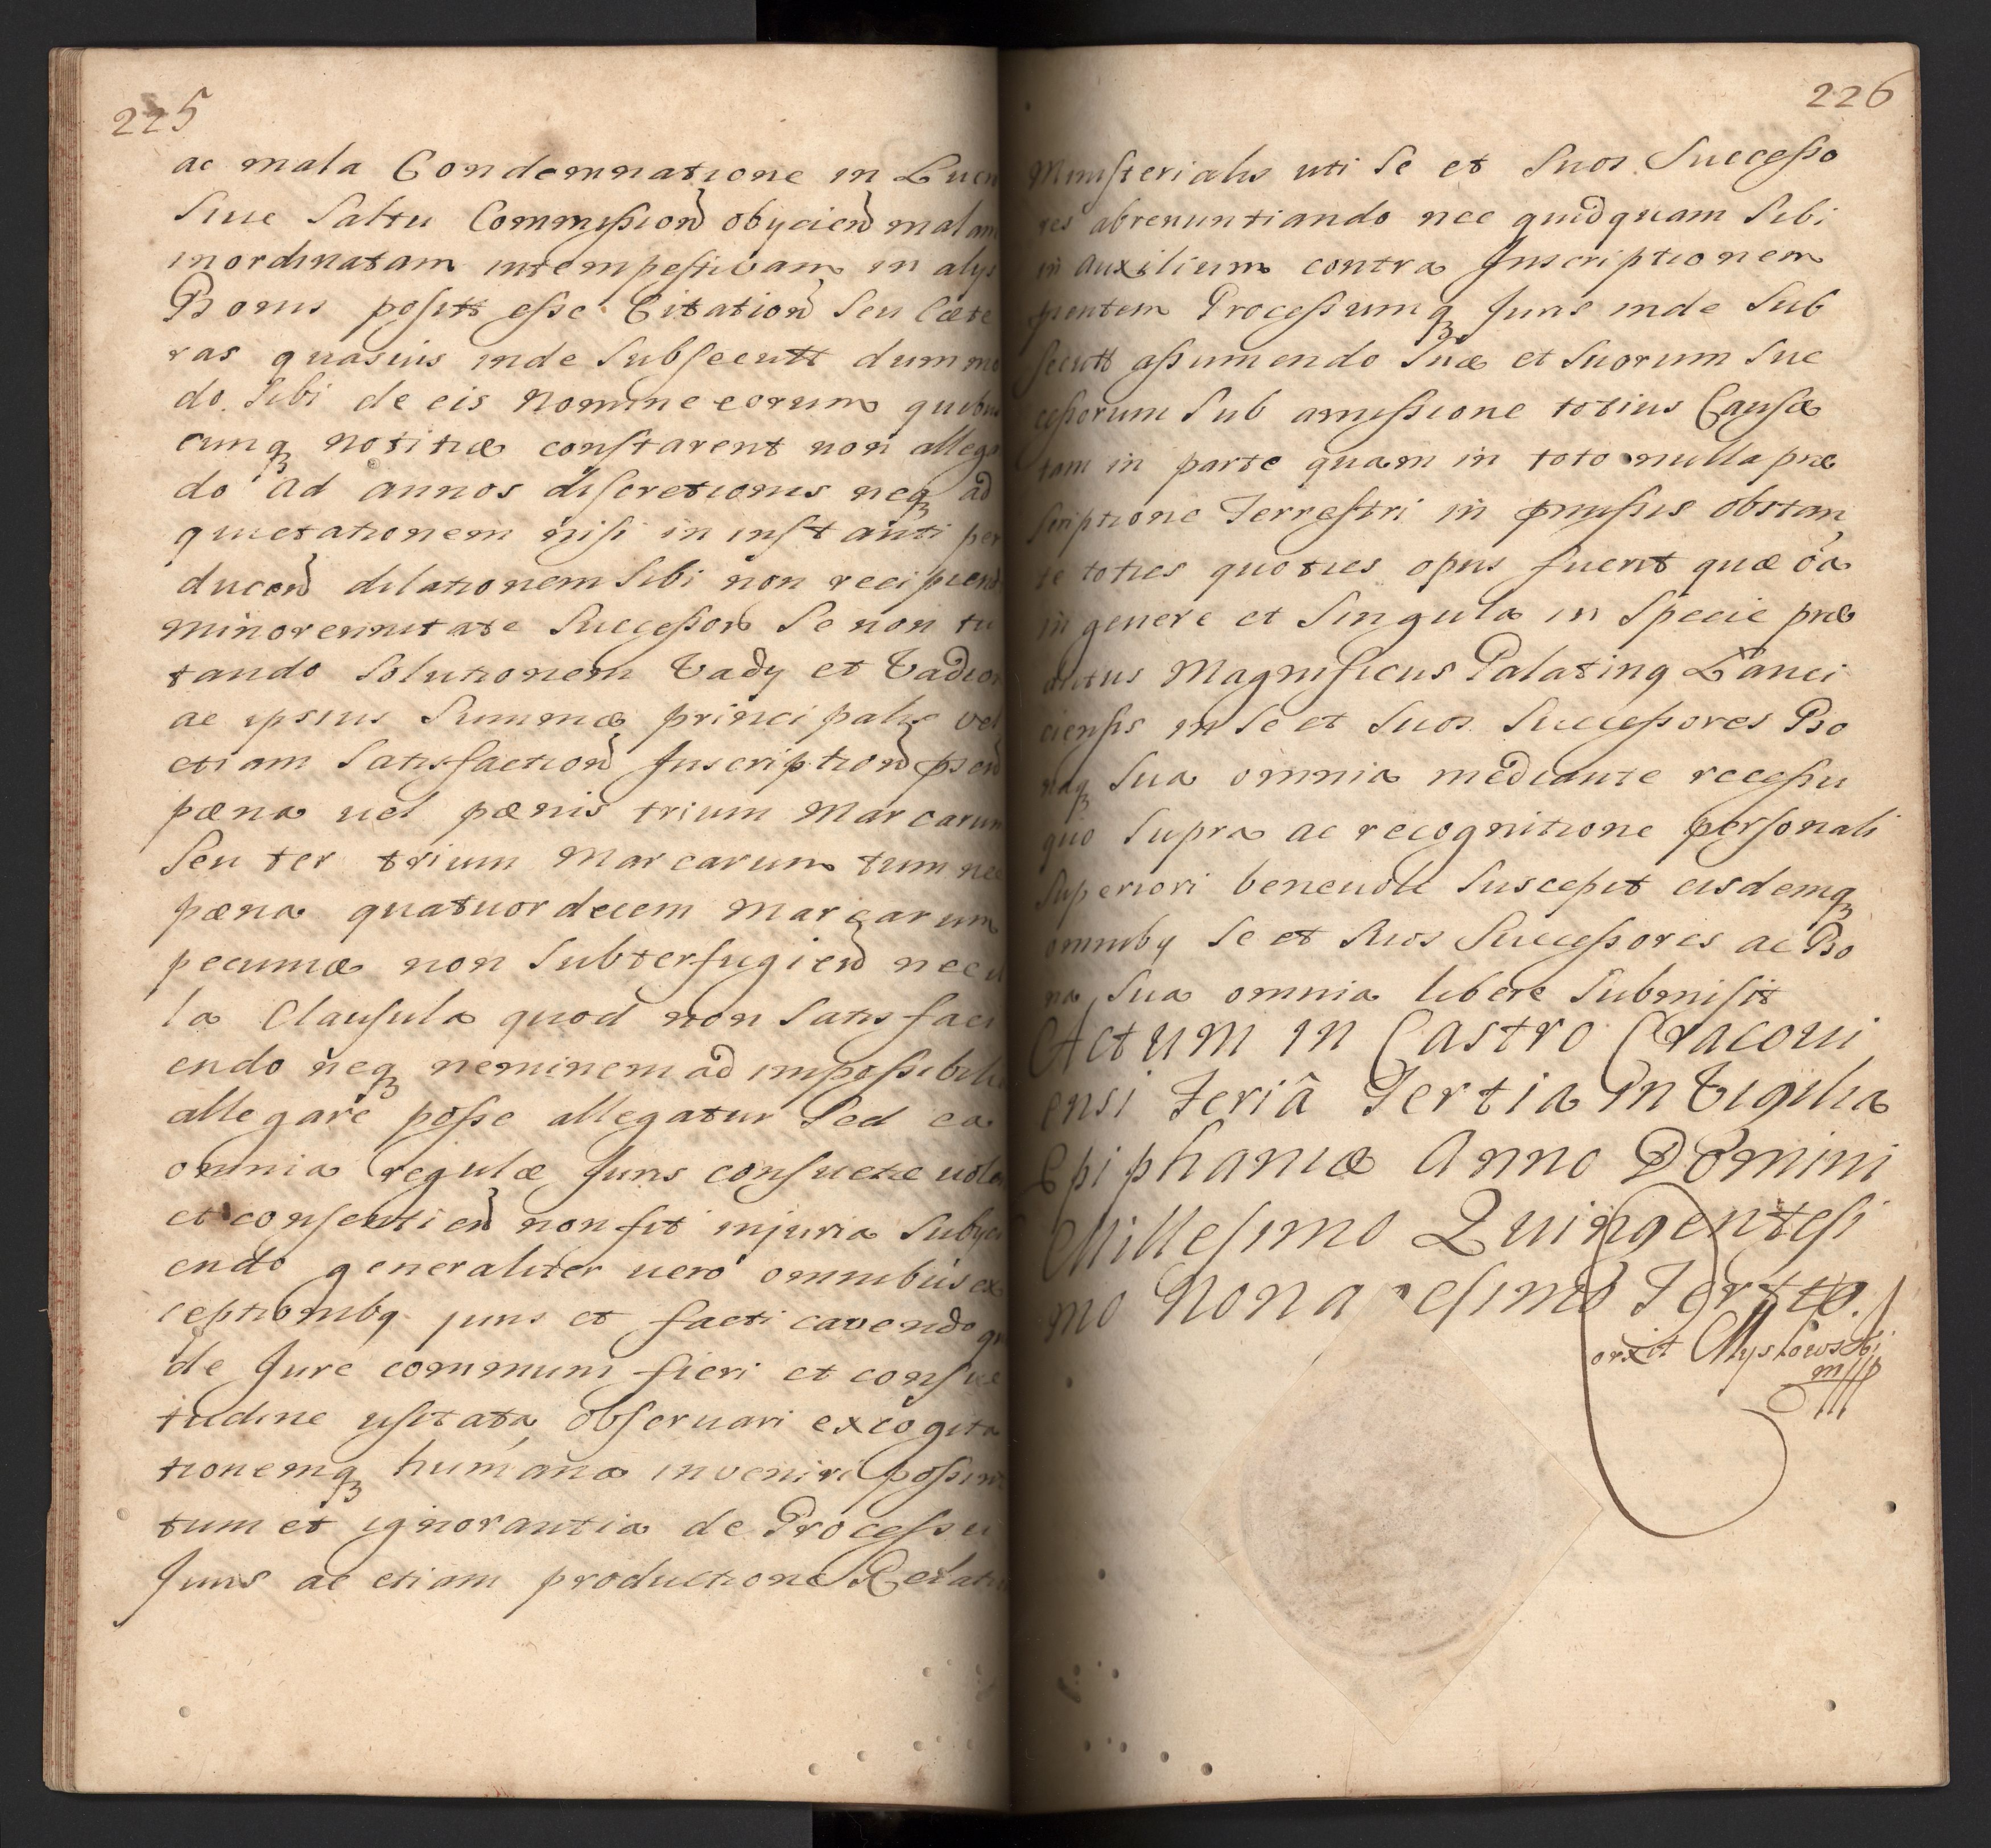 225
ac mala Condemnatione in Lucn
sine saltu Commissionđ obyciend malam
inordinatam intempestivam in alys
Bonis positt esse Citationđ seu Cæte
ras quasuis inde subsecutt dummo
do sibi de eis nomine eorum quibus
cunqꝫ notitiæ constarent non allega
do ad annos discretionis neqꝫ ad
quietationem nisi in instanti per
ducend dilationem sibi non recipiend
minorennitate successorū se non tu
tando solutionem Vady et Vadior
ac ipsius summæ principalis vel
etiam satisfactionđ Inscriptionđ pntđ
pæna uel pænis trium Marcarum
seu ter trium Marcarum tum nec
pæna quatuordecem Marcarum
pecuniæ non subterfugiend nec il
la Clausula quod non satisfaci
endo neqꝫ neminem ad impossibilia
allegare posse allegatur sed ea
omnia regulæ Juris consuetæ uolen
et consentiend non fit injuria subyci
endo generaliter uero omnibus ex
ceptionibꝫ juris et facti cavendo qu
de Jure communi fieri et consue
tudine usitata observari excogita
tionemqꝫ humana inveniri possint
tum et ignorantia de Processu
Juris ac etiam productione Relatio
226
Ministerialis uti se et suos successo
res abrenuntiando nec quidquam sibi
in auxilium contra Inscriptionem
pñentem Processumqꝫ Juris inde sub
secutt assumendo suæ et suorum suc
cessorum sub amissione totius Causæ
tam in parte quam in toto nulla præ
scriptione Terrestri in præmissis obstan
te toties quoties opus fuerit quæ oīa
in genere et singula in specie præ
dictus Magnificus Palatinꝫ Lanci
ciensis in se et suos successores Bo
naqꝫ sua omnia mediante recessu
quo supra ac recognitione personali
superiori beneuole suscepit eisdemqꝫ
omnibꝫ se et suos successores ac Bo
na sua omnia libere submisit
Actum in Castro Cracoui
ensi Feriâ Tertia in Vigilia
Epiphaniæ Anno Domini
Millesimo Quingentesi
mo Nonagesimo Tertio.
orxit Mysłowski
mpp